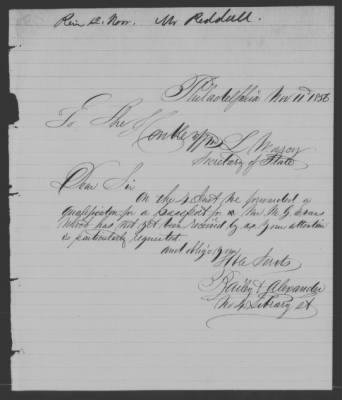 Rec'd 12. Nov. Mr Reddall.
Philadelphia Nov 11th 1856
To The
Honble Wm L Marcy
Secretary of State
Dear Sir
On the 4 Inst we forwarded a
qualification for a Passport for a Mr M. G. Evans
which has not yet been received by us your attention
is particularly requested.
and oblige your
Obt Servts
Bailey & Alexander
No 4 Library St